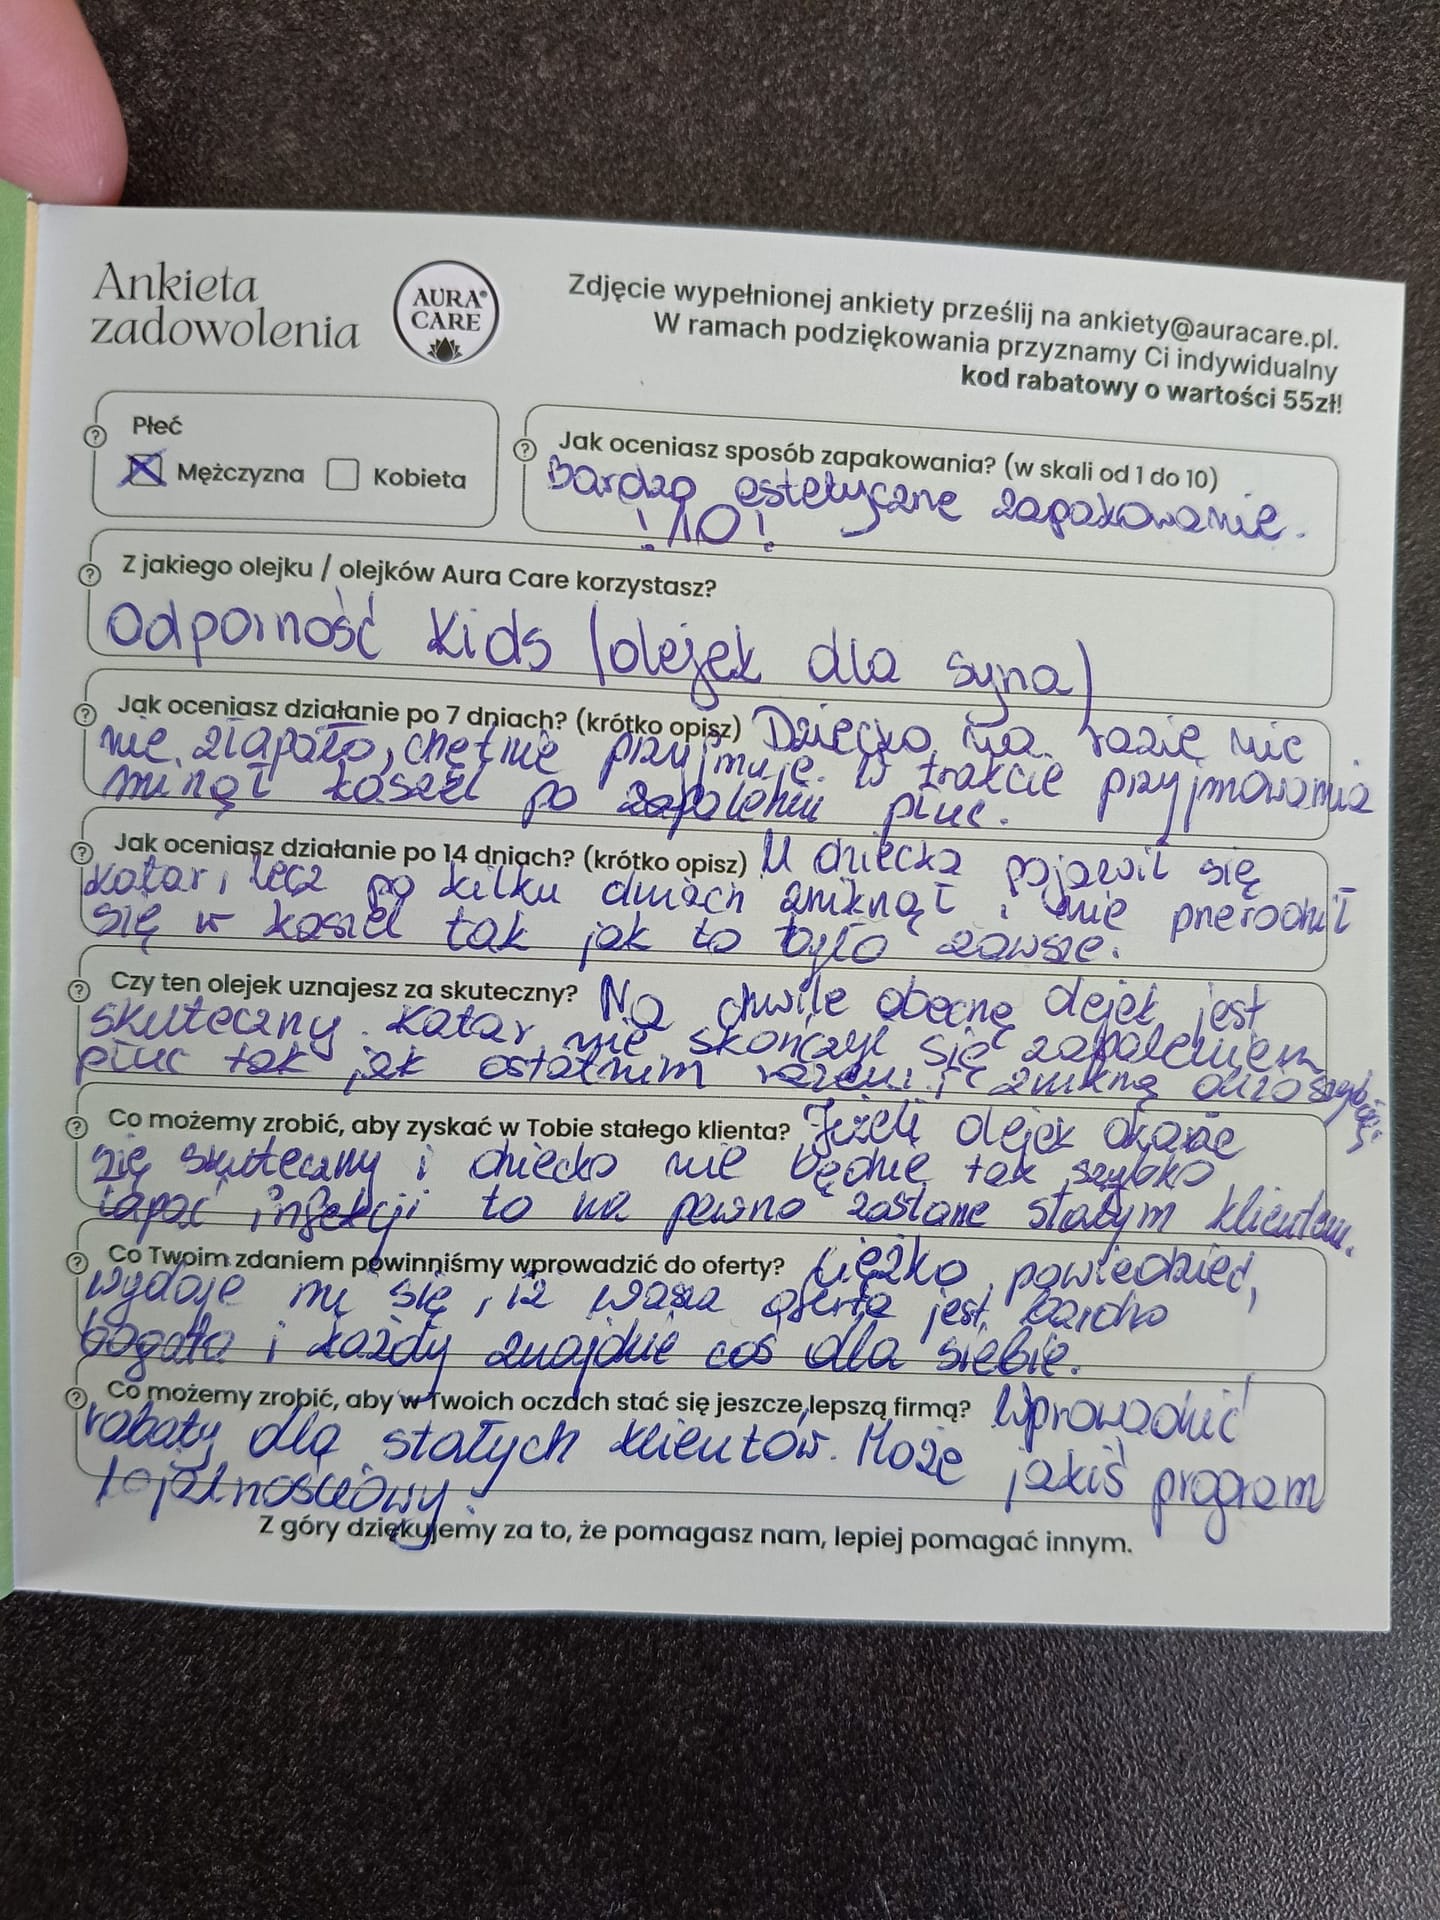 Ankieta
zadowolenia
AURA®
CARE
Zdjęcie wypełnionej ankiety prześlij na ankiety@auracare.pl.
W ramach podziękowania przyznamy Ci indywidualny
kod rabatowy o wartości 55zł!
Płeć
Mężczyzna Kobieta
Jak oceniasz sposób zapakowania? (w skali od 1 do 10)
Bardzo estetyczne zapakowanie.
! 10 !
Z jakiego olejku / olejków Aura Care korzystasz?
Odporność Kids (olejek dla syna)
Jak oceniasz działanie po 7 dniach? (krótko opisz) Dziecko na razie nic
nie złapało, chętnie przyjmuje. W trakcie przyjmowania
minął kaszel po zapaleniu płuc.
Jak oceniasz działanie po 14 dniach? (krótko opisz) U dziecka pojawił się
katar, lecz po kilku dniach zniknął i nie przerodził
się w kaszel tak jak to było zawsze.
Czy ten olejek uznajesz za skuteczny? Na chwile obecną olejek jest
skuteczny. Katar nie skończył się zapaleniem
płuc tak jak ostatnim razem i znikną dużo szybciej.
Co możemy zrobić, aby zyskać w Tobie stałego klienta? Jeżeli olejek okaże
się skuteczny i dziecko nie będzie tak szybko
łapać infekcji to na pewno zostane stałym klientem.
Co Twoim zdaniem powinniśmy wprowadzić do oferty? Ciężko powiedzieć,
wydaje mi się, iż wasza oferta jest bardzo
bogata i każdy znajdzie coś dla siebie.
Co możemy zrobić, aby w Twoich oczach stać się jeszcze lepszą firmą? Wprowadzić
rabaty dla stałych klientów. Może jakiś program
lojalnościowy.
Z góry dziękujemy za to, że pomagasz nam, lepiej pomagać innym.